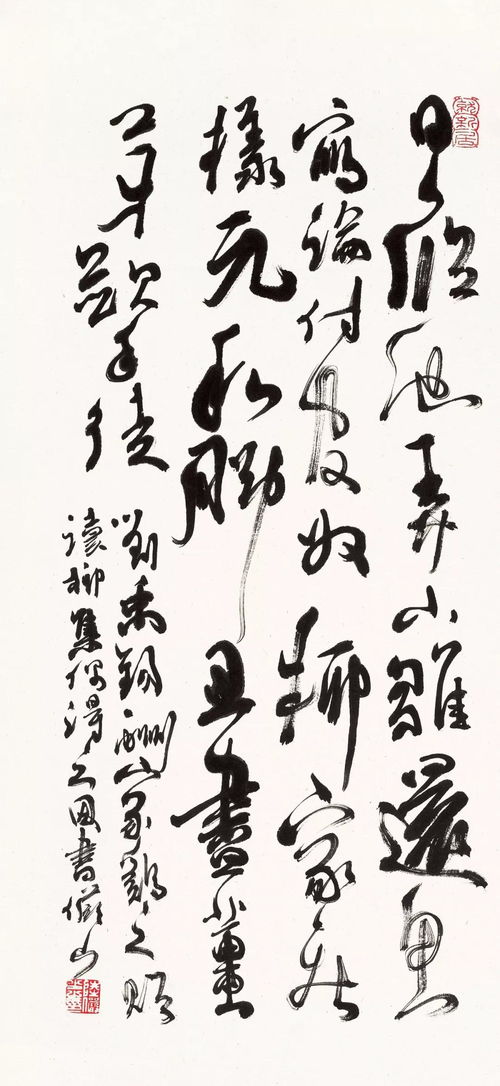 日〻臨池弄小雛還思
寫論付官奴柳家新
樣元和腳且盡薑
芽斂手徒
劉禹錫酬家雞之贈
讀柳集偶得之因書儼少